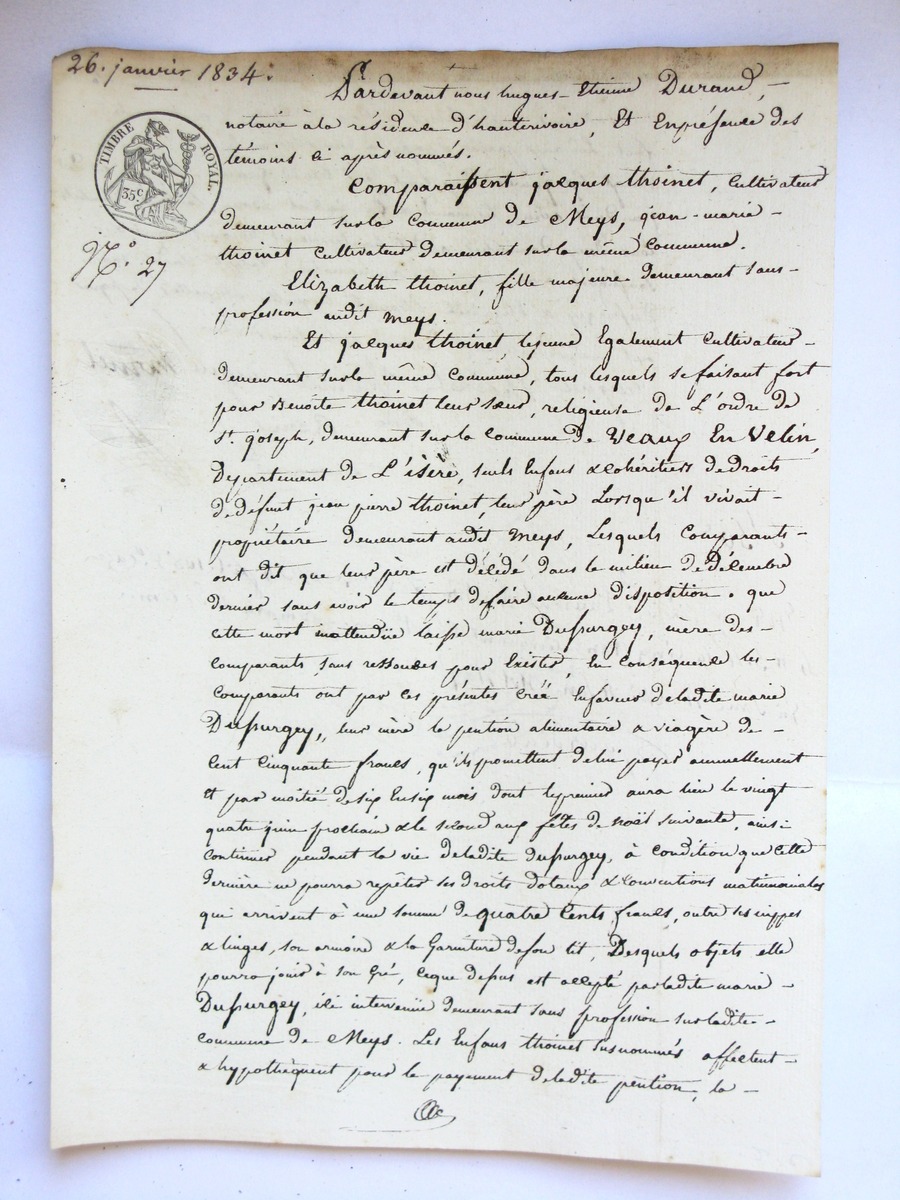 26. janvier 1834.
Pardevant nous hugues-Etienne Durand,
notaire à la résidence d'hauterivoire, Et En présence des
témoins ci après nommés.
TIMBRE ROYAL.
35c
N.° 27
Comparaissent jacques thoinet, cultivateur
demeurant sur la Commune de Meys, jean-marie
thoinet cultivateur demeurant sur la même Commune.
Elizabeth thoinet, fille majeure demeurant sans
profession audit meys.
Et jacques thoinet lejeune Egalement cultivateur
demeurant sur la même commune, tous lesquels se faisant fort
pour Benoîte thoinet leur sœur, religieuse de L'ordre de
St. joseph, demeurant sur la commune de Veaux En Velin,
département de L'isère, seuls Enfans & cohéritiers de droits
de défunt jean pierre thoinet, leur père Lorsqu'il vivait
propriétaire demeurant audit meys, Lesquels Comparants
ont dit que leur père est décédé dans le milieu de décembre
dernier sans avoir le temps de faire aucune disposition. que
cette mort inattendüe laisse marie Dupurgey, mère des
comparants sans ressources pour Exister, En conséquence les
comparants ont par ces présentes créé En faveur de ladite marie
Dupurgey, leur mère la pention alimentaire & viagère de
Cent Cinquante francs, qu'ils promettent de lui payer annuellement
et par moitié de six En six mois dont le premier aura lieu le vingt
quatre juin prochain & le second aux fêtes de noël suivante, ainsi
continuer pendant la vie de ladite dupurgey, à condition que Cette
dernière ne pourra repéter ses droits dotaux & conventions matrimoniales
qui arrivent à une somme de quatre Cents francs, outre ses nippes
& linges, son armoire & la Garniture de son lit, Desquels objets elle
pourra jouir à son Gré, Ce que dessus est accepté par ladite marie
Dupurgey, ici intervenüe demeurant sans profession sur ladite
commune de Meys. Les Enfans thoinet susnommés affectent
& hypothèquent pour le payement de ladite pention, la